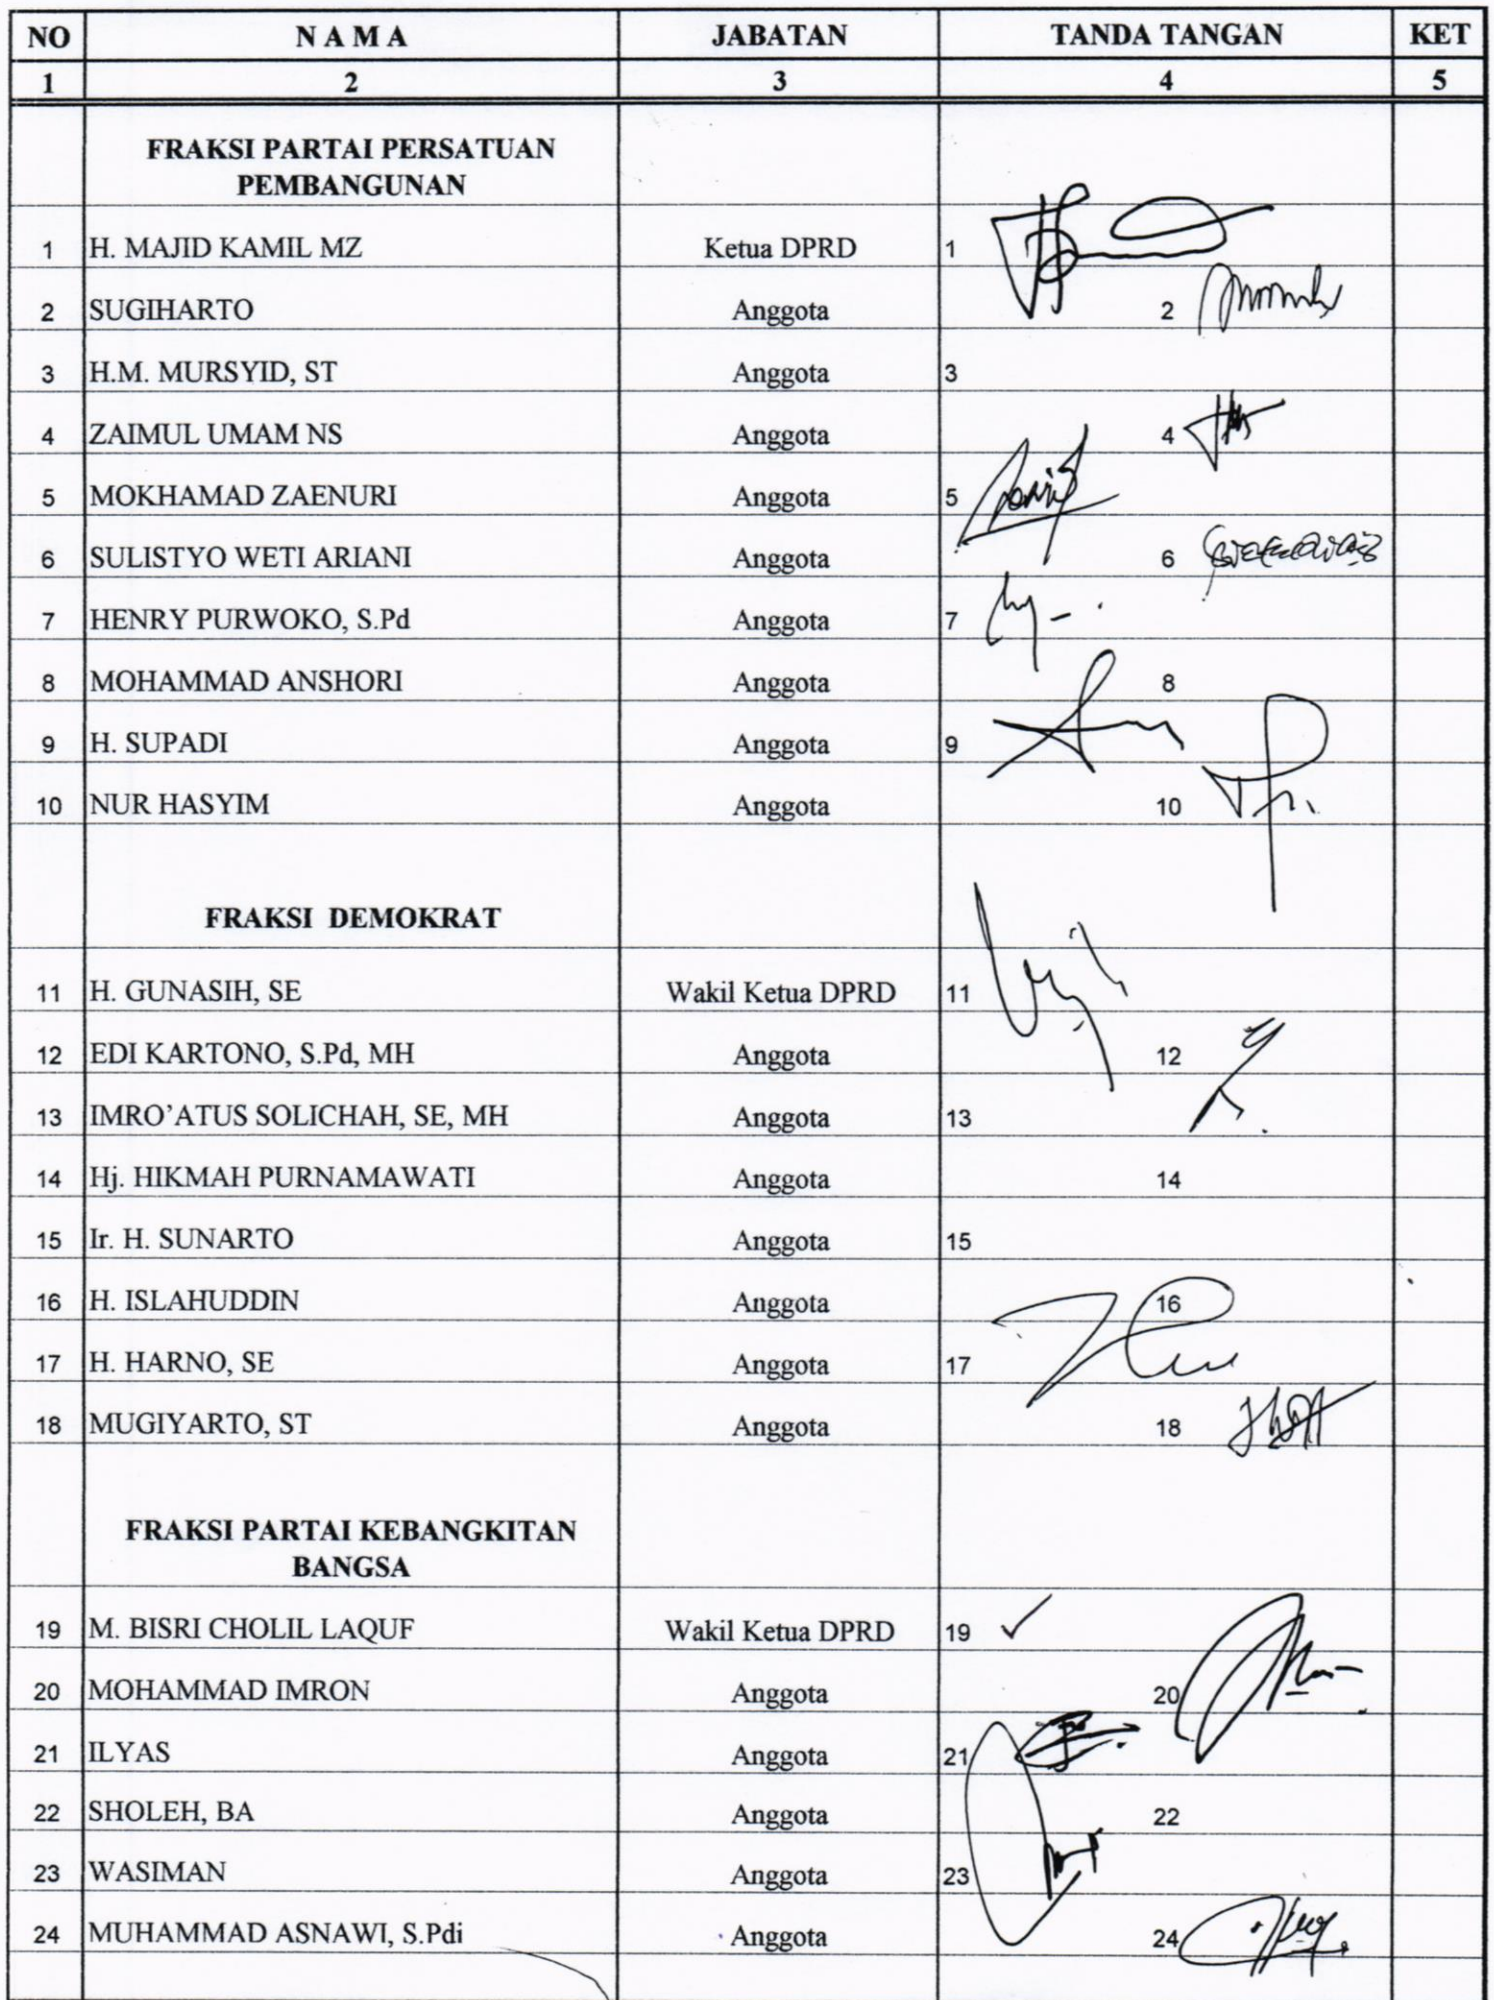 NO N A M A JABATAN TANDA TANGAN KET
1 2 3 4 5
FRAKSI PARTAI PERSATUAN
PEMBANGUNAN
1 H. MAJID KAMIL MZ Ketua DPRD 1
2 SUGIHARTO Anggota 2
3 H.M. MURSYID, ST Anggota 3
4 ZAIMUL UMAM NS Anggota 4
5 MOKHAMAD ZAENURI Anggota 5
6 SULISTYO WETI ARIANI Anggota 6
7 HENRY PURWOKO, S.Pd Anggota 7
8 MOHAMMAD ANSHORI Anggota 8
9 H. SUPADI Anggota 9
10 NUR HASYIM Anggota 10
FRAKSI DEMOKRAT
11 H. GUNASIH, SE Wakil Ketua DPRD 11
12 EDI KARTONO, S.Pd, MH Anggota 12
13 IMRO’ATUS SOLICHAH, SE, MH Anggota 13
14 Hj. HIKMAH PURNAMAWATI Anggota 14
15 Ir. H. SUNARTO Anggota 15
16 H. ISLAHUDDIN Anggota 16
17 H. HARNO, SE Anggota 17
18 MUGIYARTO, ST Anggota 18
FRAKSI PARTAI KEBANGKITAN
BANGSA
19 M. BISRI CHOLIL LAQUF Wakil Ketua DPRD 19
20 MOHAMMAD IMRON Anggota 20
21 ILYAS Anggota 21
22 SHOLEH, BA Anggota 22
23 WASIMAN Anggota 23
24 MUHAMMAD ASNAWI, S.Pdi Anggota 24